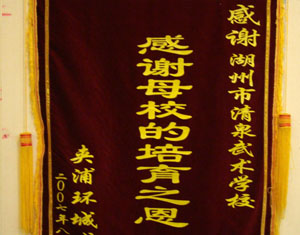 感谢湖州市清泉武术学校
感谢母校的培育之恩
夹浦环城
二00七年八